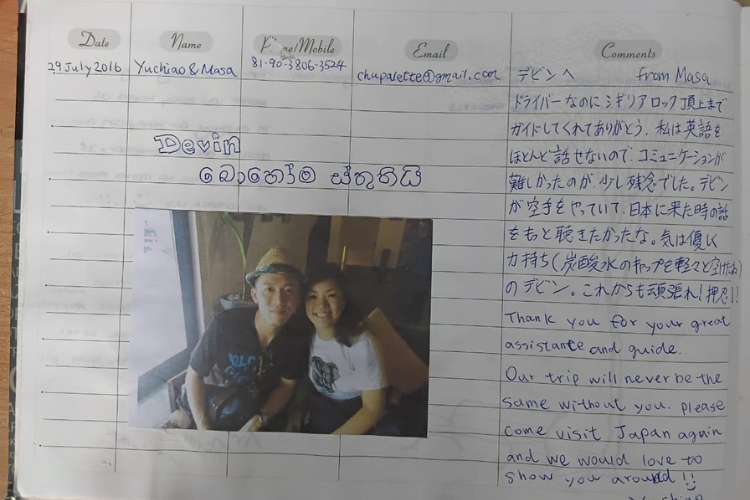 Date Name Phone/Mobile Email Comments
29 July 2016 Yuchiao & Masa 81-90-3806-3524 chupalette@gmail.com デビンへ from Masa
ドライバーなのにシギリアロック頂上まで
ガイドしてくれてありがとう。私は英語を
ほとんど話せないので、コミュニケーションが
難しかったのが、少し残念でした。デビン
が空手をやっていて、日本に来た時の話
をもっと聴きたかったな。気は優しく
力持ち(炭酸水のキャップを軽々と空けたね)
のデビン。これからも頑張れ!押忍!!
Devin
බොහෝම ස්තුතියි
Thank you for your great
assistance and guide.
Our trip will never be the
same without you. please
come visit Japan again
and we would love to
show you around!!